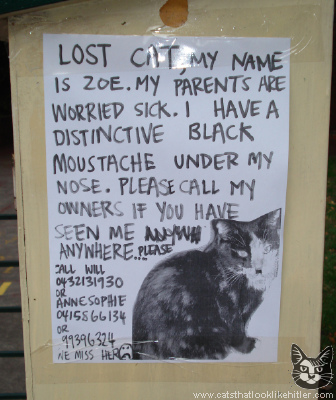 LOST CAT, MY NAME
IS ZOE. MY PARENTS ARE
WORRIED SICK. I HAVE A
DISTINCTIVE BLACK
MOUSTACHE UNDER MY
NOSE. PLEASE CALL MY
OWNERS IF YOU HAVE
SEEN ME
ANYWHERE... PLEASE
CALL WILL
0432131930
OR
ANNESOPHIE
0415866134
OR
99396324
WE MISS HER
www.catsthatlooklikehitler.com